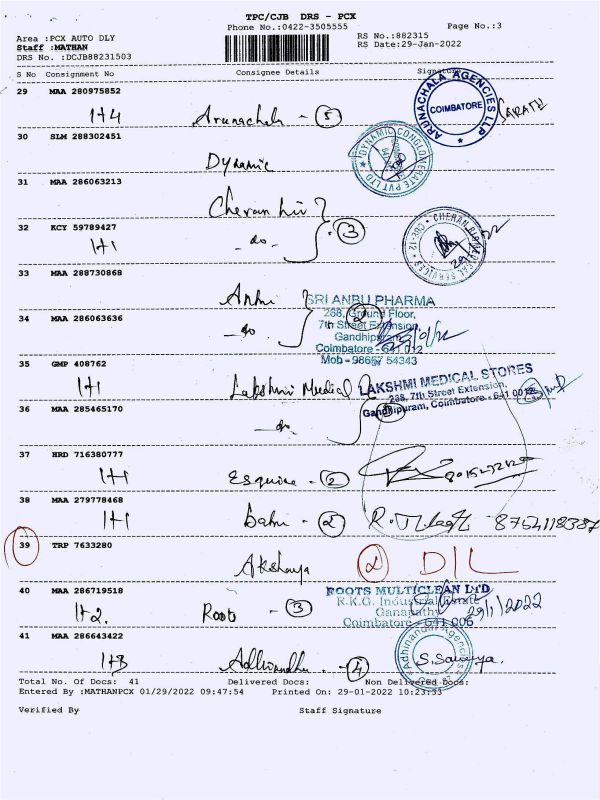 TPC/CJB DRS - PCX
Phone No.:0422-3505555 Page No.:3
Area :PCX AUTO DLY RS No.:882315
Staff :MATHAN RS Date:29-Jan-2022
DRS No. :DCJB88231503
S No Consignment No Consignee Details Signature
29 MAA 280975852
1+4 Arunachala - 5
ARUNACHALA AGENCIES LLP
COIMBATORE
30 SLM 288302451
Dynamic
DYNAMIC CONGLOMERATE PVT LTD
31 MAA 286063213
Cheran
32 KCY 59789427
1+1 - do - 3
33 MAA 288730868
Anbu
SRI ANBU PHARMA
268, Ground Floor,
7th Street Extension,
Gandhipuram,
Coimbatore - 641 012
Mob - 98657 54343
34 MAA 286063636
- do 2
35 GMP 408762
1+1 Lakshmi Medical
LAKSHMI MEDICAL STORES
268, 7th Street Extension,
Gandhipuram, Coimbatore - 641 012
36 MAA 285465170
- do -
37 HRD 716380777
1+1 Esquire - 2
38 MAA 279778468
1+1 - 2
39 TRP 7633280
Akshaya 2 D/L
40 MAA 286719518
1+2. Roots - 3
ROOTS MULTICLEAN LTD
R.K.G. Industrial Estate
Ganapathy
Coimbatore - 641 006
29/1/2022
41 MAA 286643422
1+3 - 4
S. Saranya.
Total No. of Docs: 41 Delivered Docs: Non Delivered Docs:
Entered By :MATHANPCX 01/29/2022 09:47:54 Printed On: 29-01-2022 10:23:53
Verified By Staff Signature